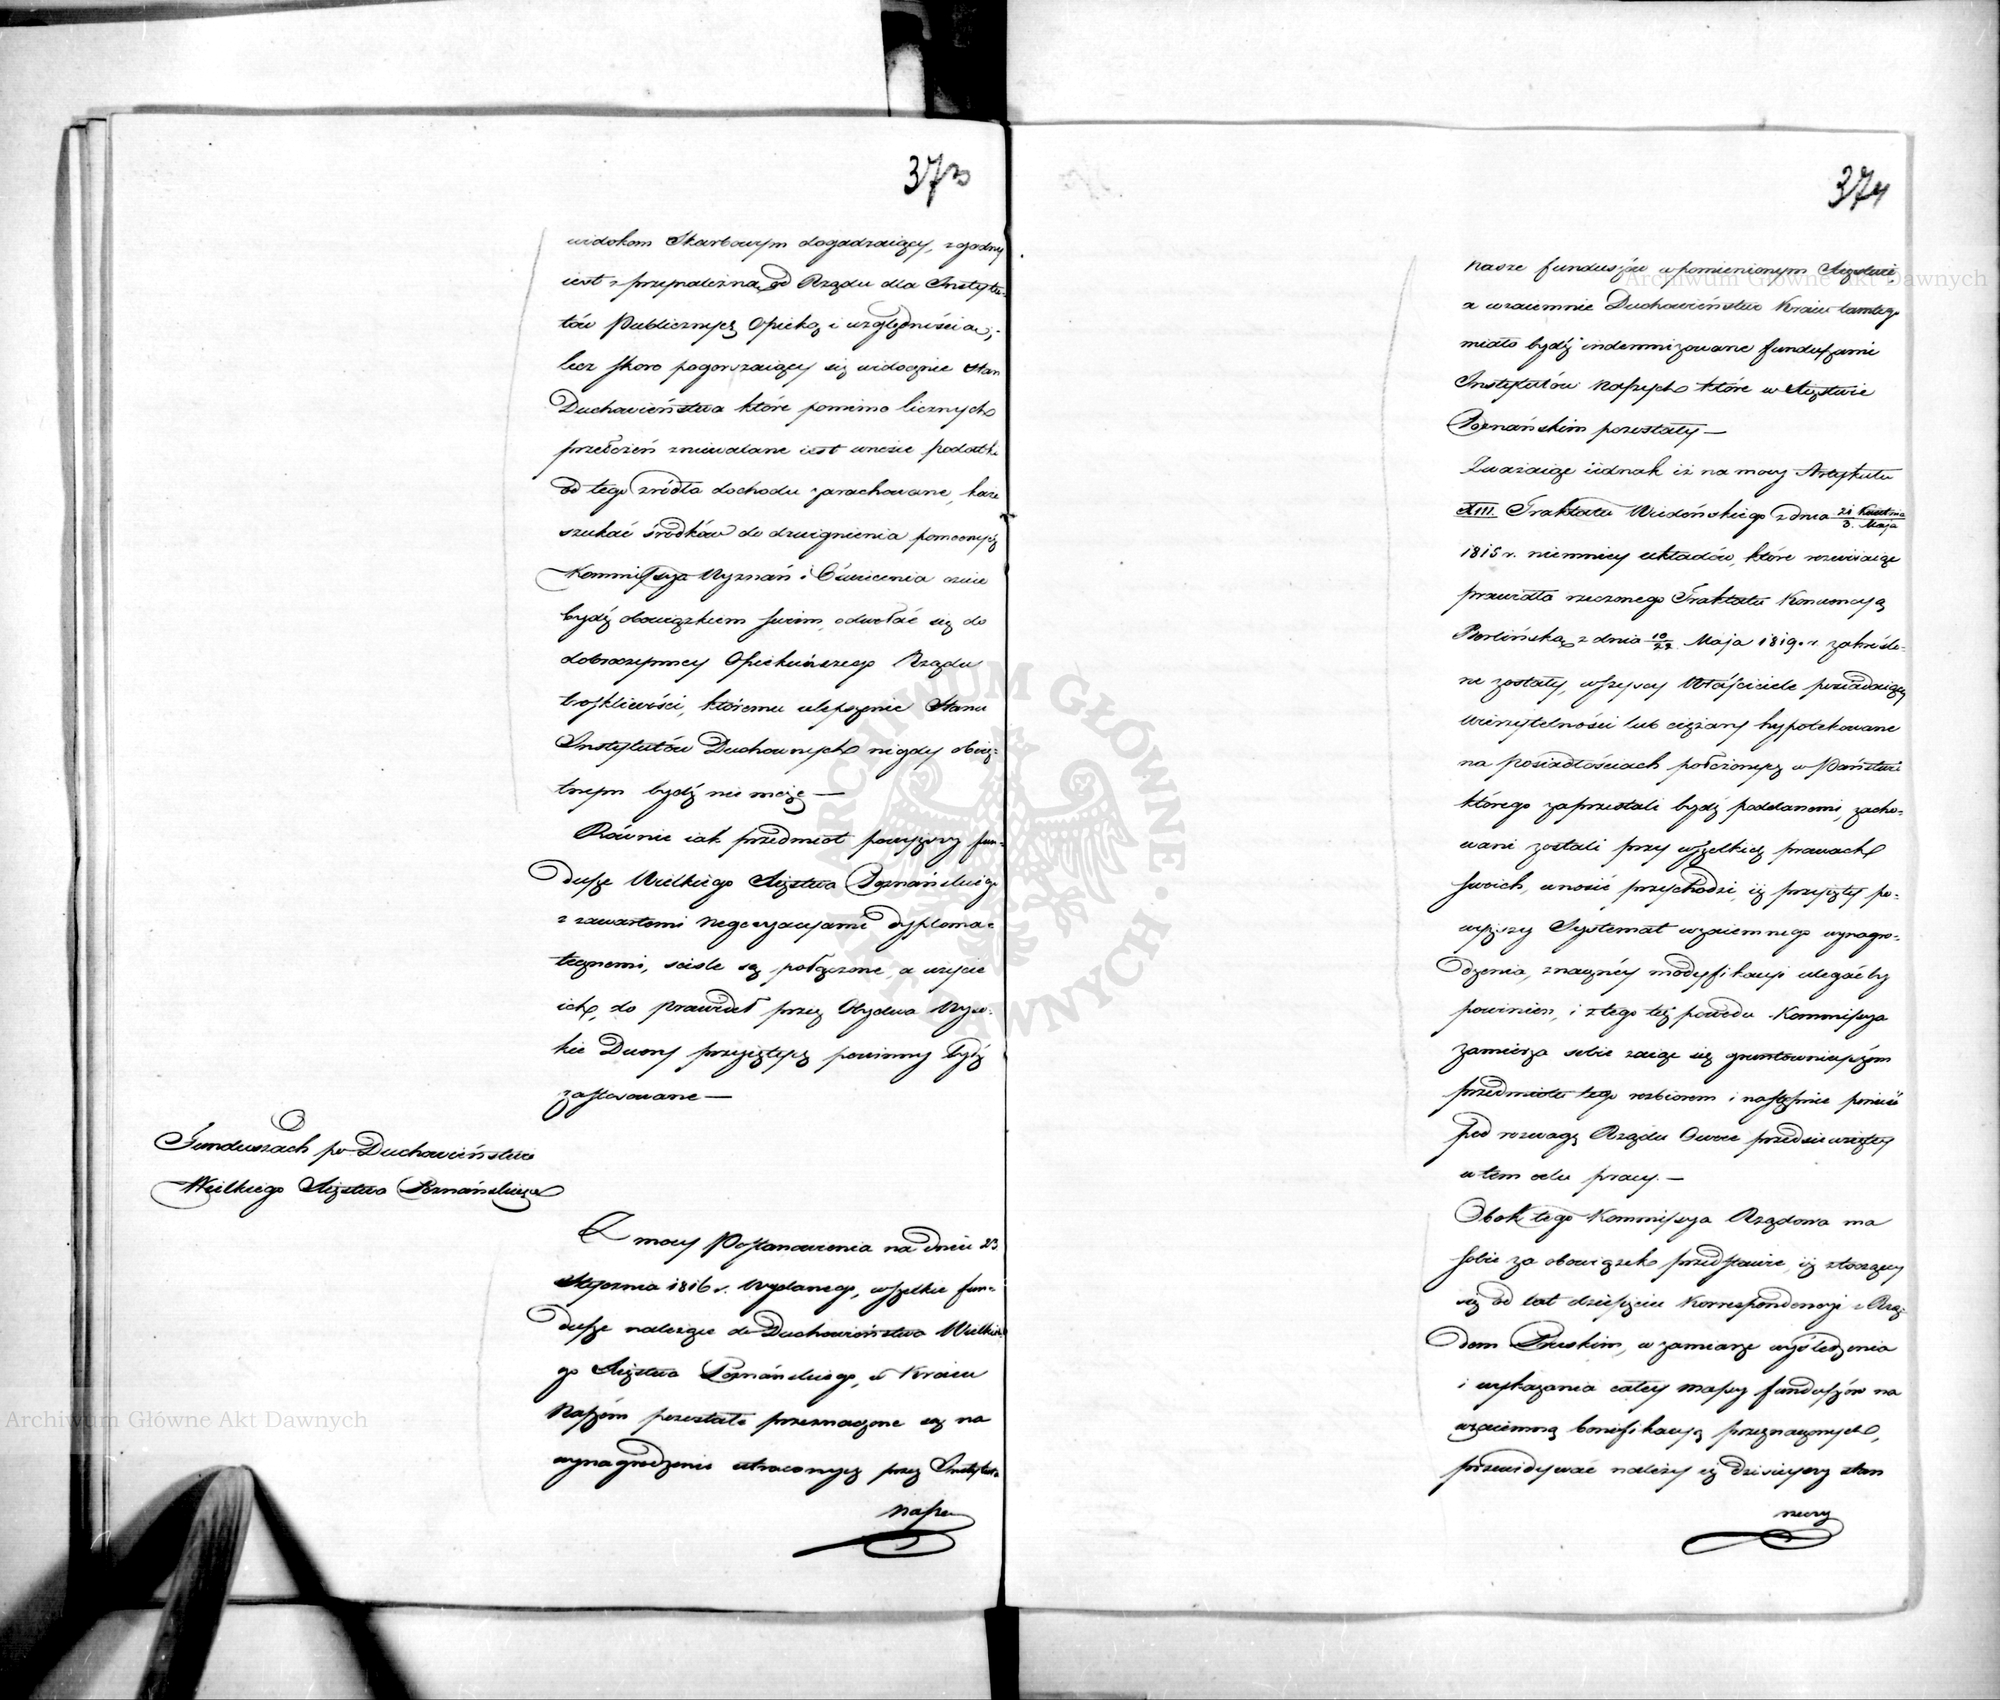 373
widokom Skarbowym dogadzaiący, zgodny
iest z przynależną od Rządu dla Instytu-
tów Publicznych Opieką i względnościa,
lecz skoro pogorszaiący się widocznie Stan
Duchowieństwa które pomimo licznych
przełożeń zniewalane iest wnosić podatki
od tego źródła dochodu zarachowane, każe
szukać środków do dzwignienia pomocnych
Kommissya Wyznań i Oświecenia czuie
bydź obowiązkiem swoim, odwołać się do
dobroczynney Opiekuńczego Rządu
troskliwości, któremu ulepszenie Stanu
Instytutów Duchownych nigdy oboię-
tnym bydź nie może —
Równie iak przedmiot powyższy fun-
dusze Wielkiego Xięztwa Poznańskiego
z zawartemi negocyacyami dyploma-
tycznemi, ściśle są połączone, a użycie
ich, do prawideł przez Obydwa Wyso-
kie Dwory przyiętych powinny bydź
zastosowane —
O
Funduszach po Duchowieństwie
Wielkiego Xięztwa Poznańskiego
Z mocy Postanowienia na dniu 23
Stycznia 1816 r. wydanego, wszelkie fun-
dusze należące do Duchowieństwa Wielkie-
go Xięztwa Poznańskiego, w Kraiu
Naszym pozostałe przeznaczone są na
wynagrodzenie utraconych przez Instytuta
nasze
374
nasze funduszów w pomienionym Xięztwie
a wzaiemnie Duchowieństwo Kraiu tamtego
miało bydź indemnizowane funduszami
Instytutów Naszych które w Xięztwie
Poznańskim pozostały —
Zważaiąc iednak iż na mocy Artykułu
XIII. Traktatu Wiedeńskiego z dnia 21 Kwietnia/3. Maja
1815 r. niemniey układów, które rozwiiaiąc
prawidła rzeczonego Traktatu Konwencyą
Berlińską z dnia 10/22 Maja 1819. r. zakreślo-
ne zostały, wszyscy Właściciele posiadaiący
wierzytelności lub ciężary hypotekowane
na posiadłościach położonych w Państwie
którego zaprzestali bydź poddanemi, zacho-
wani zostali przy wszelkich prawach
swoich, wnosić przychodzi, iż przyięty po-
wyższy Systemat wzaiemnego wynagro-
dzenia, znaczney modyfikacyi ulegać by
powinien, i z tego też powodu Kommissya
zamierza sobie zaiąć się gruntownieyszym
przedmiotu tego rozbiorem i następnie ponieść
pod rozwagę Rządu Owoc przedsięwziętey
w tem celu pracy. —
Obok tego Kommissya Rządowa ma
sobie za obowiązek przedstawić, iż z toczącey
się od lat dziesięciu Korrespondencyi z Rzą-
dem Pruskim, w zamiarze wyśledzenia
i wykazania całey massy funduszów na
wzaiemną bonifikacyą przeznaczonych,
przewidywać należy iż dzisieyszy stan
rzeczy
Archiwum Główne Akt Dawnych
Archiwum Główne Akt Dawnych
ARCHIWUM GŁÓWNE AKT DAWNYCH